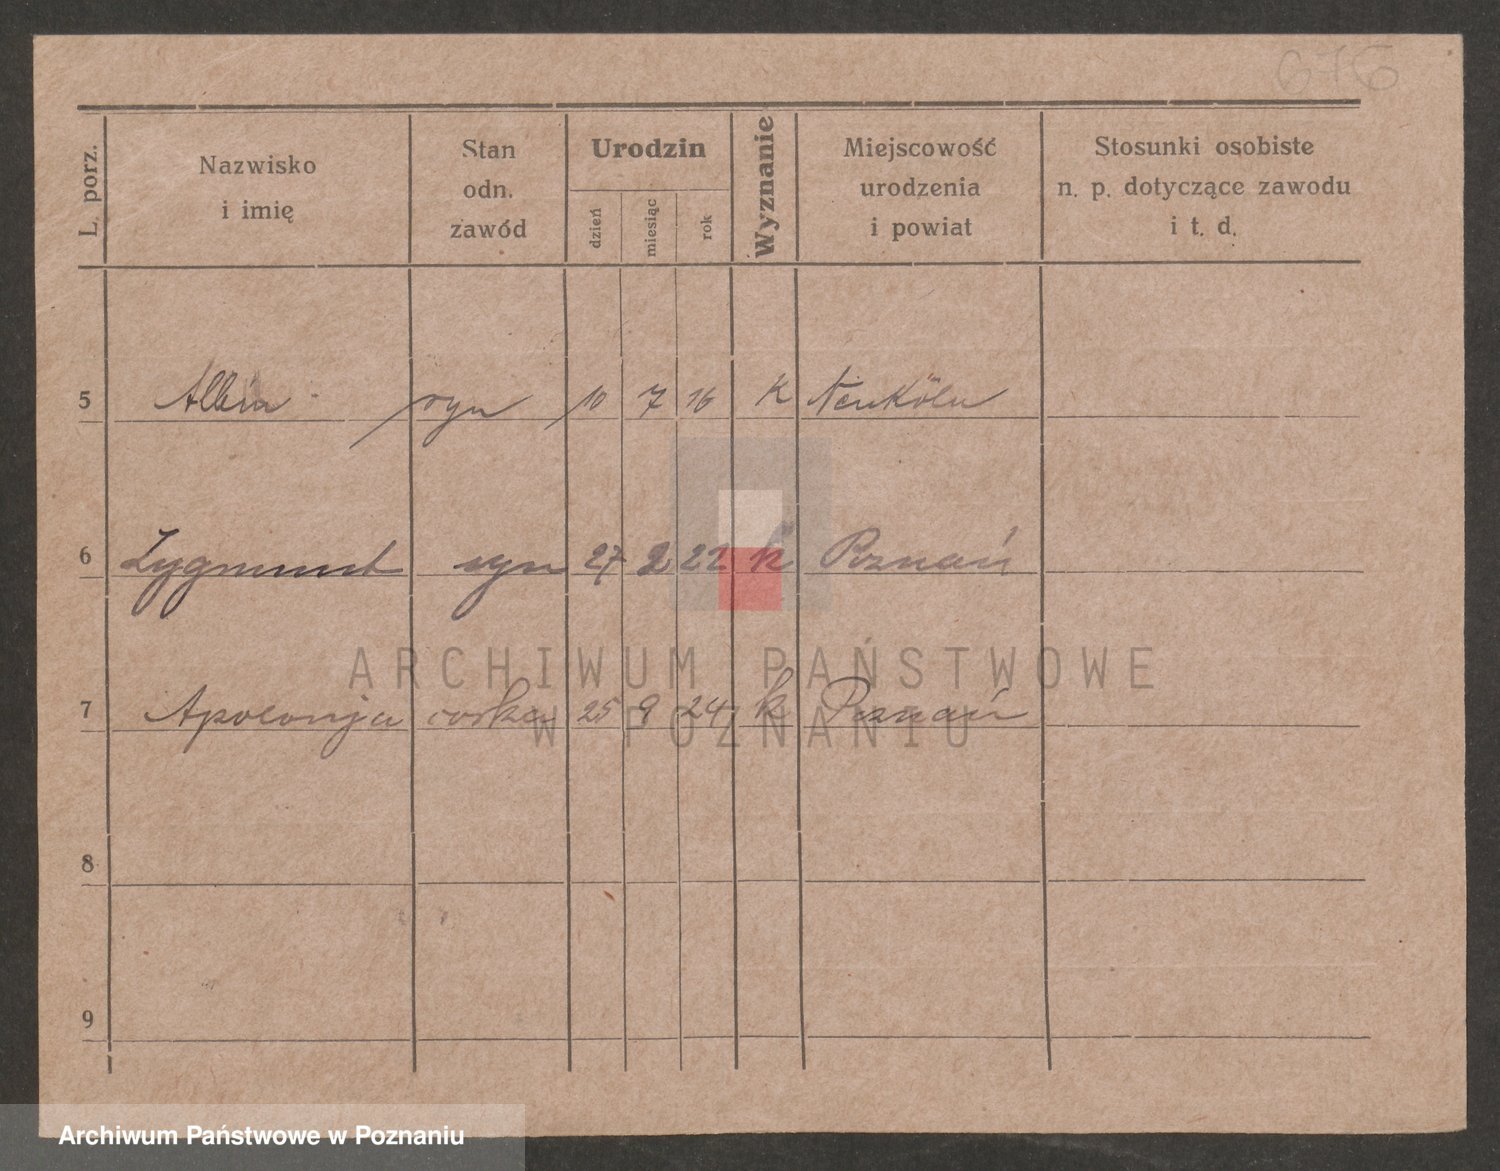 676
L. porz.
Nazwisko
i imię
Stan
odn.
zawód
Urodzin
dzień
miesiąc
rok
Wyznanie
Miejscowość
urodzenia
i powiat
Stosunki osobiste
n. p. dotyczące zawodu
i t. d.
5 Albin syn 10 7 16 K Neukölln
6 Zygmunt syn 27 2 22 k Poznań
7 Apolonja corka 25 9 24 k Poznań
8
9
ARCHIWUM PAŃSTWOWE
W POZNANIU
Archiwum Państwowe w Poznaniu